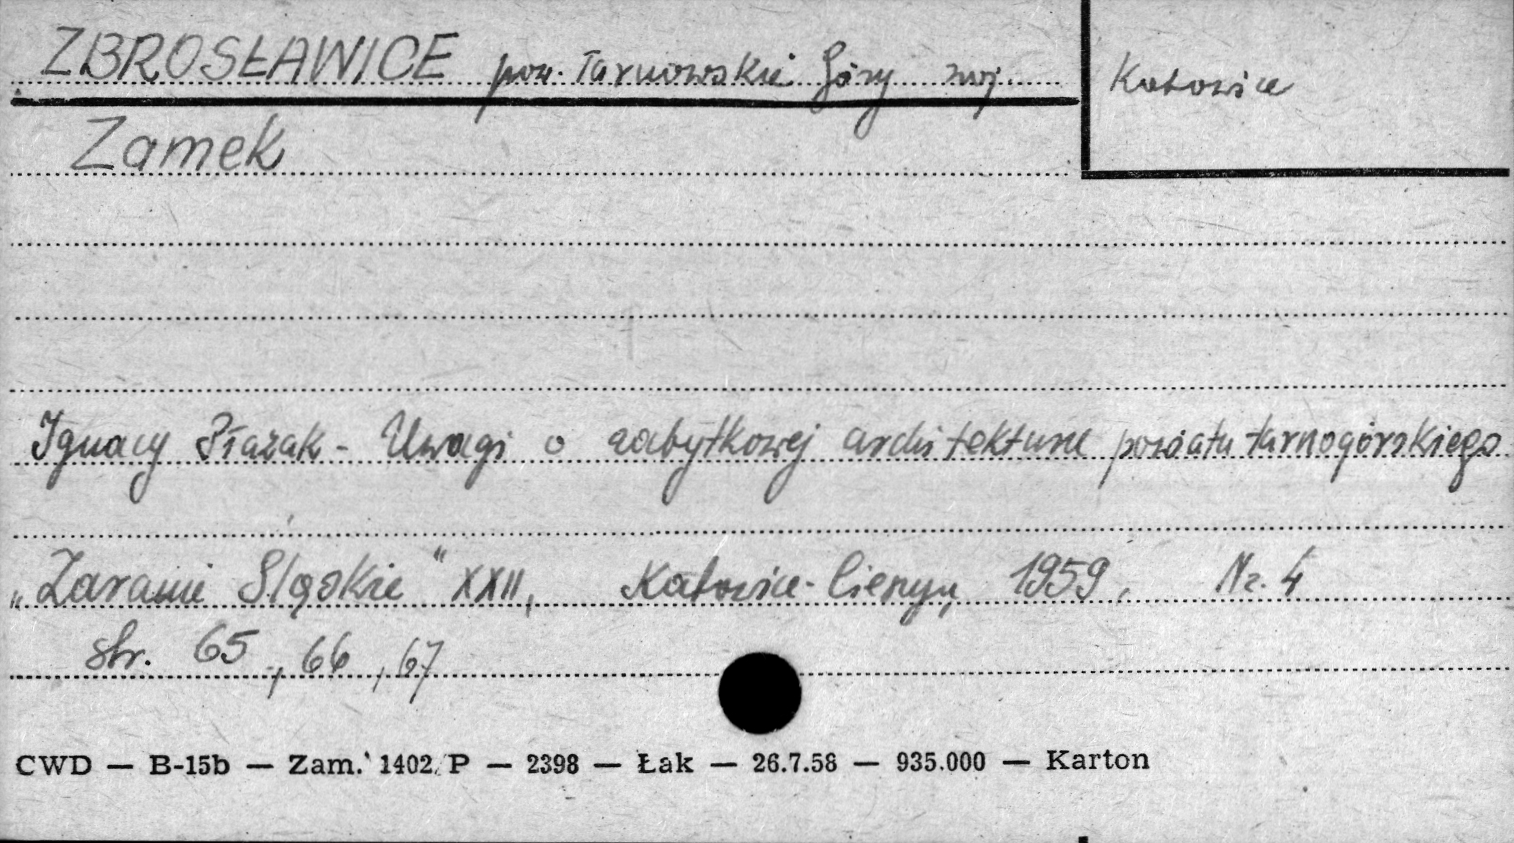 ZBROSŁAWICE pow. Tarnowskie Góry woj. Katowice
Zamek
Ignacy Płazak - Uwagi o zabytkowej architekturze powiatu tarnogórskiego
„Zaranie Śląskie" XXII, Katowice - Cieszyn, 1959, Nr. 4
str. 65, 66, 67
CWD — B-15b — Zam. 1402/P — 2398 — Łak — 26.7.58 — 935.000 — Karton